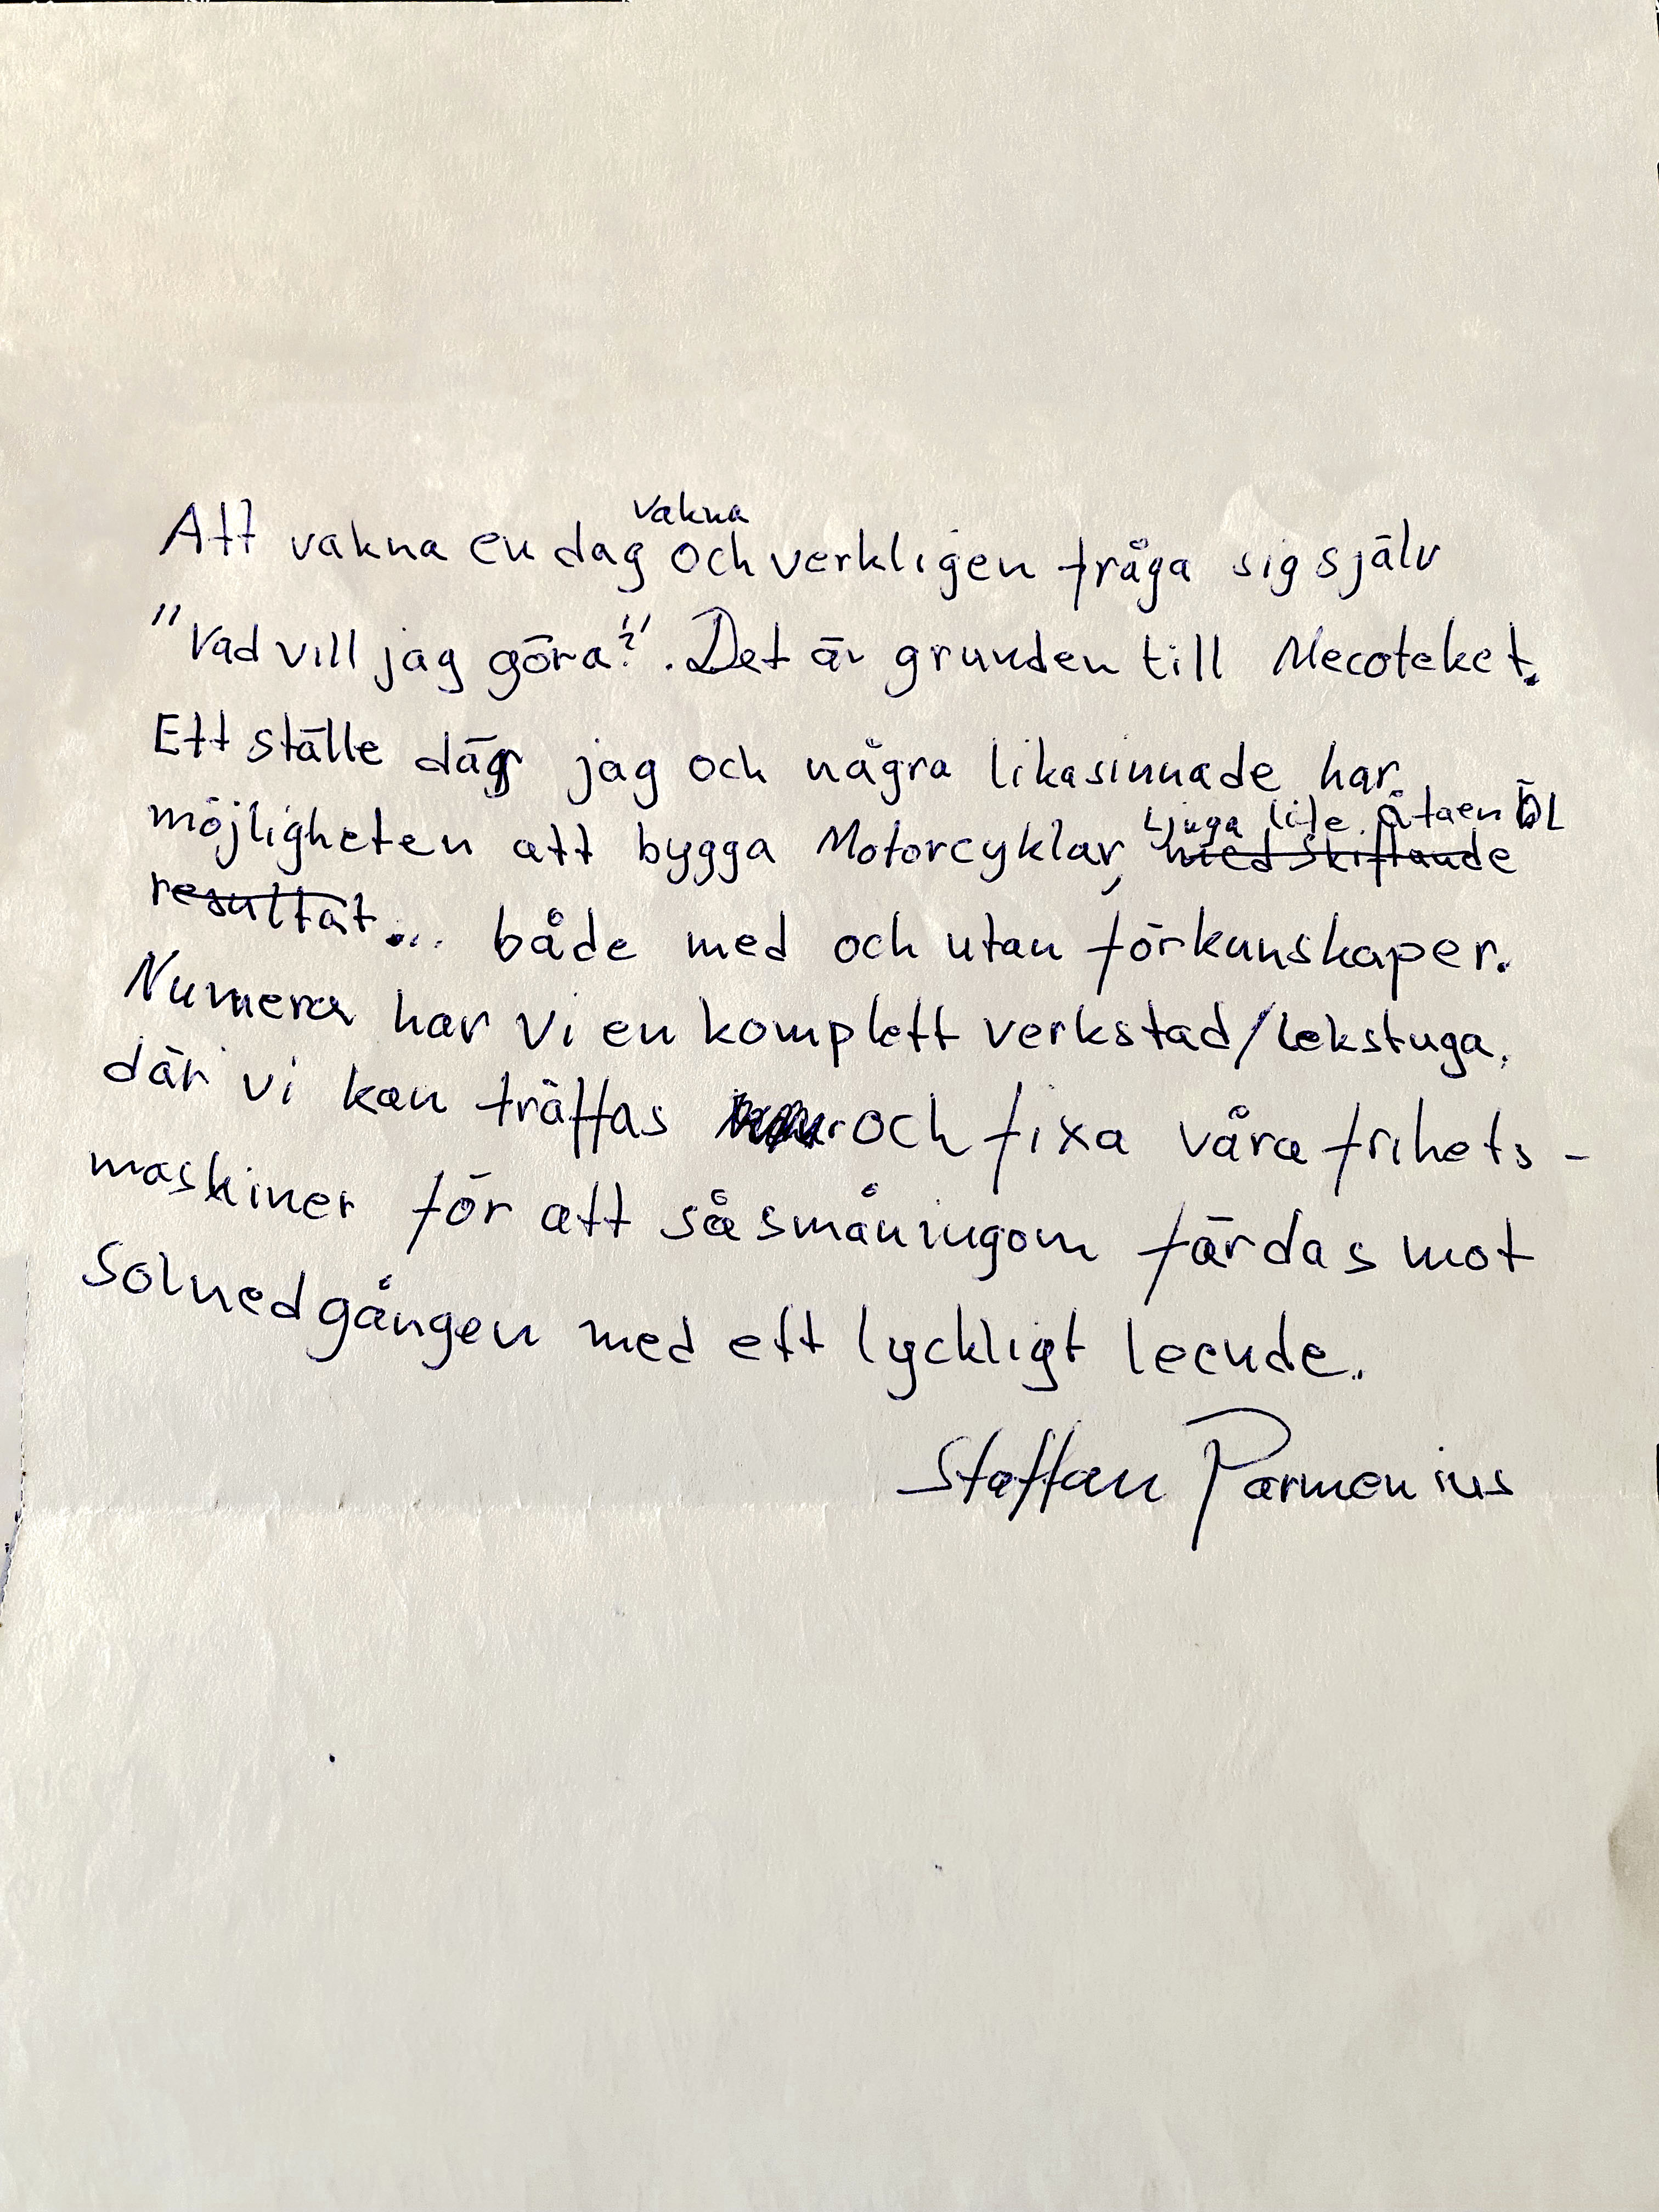 vakna
Att vakna en dag och verkligen fråga sig själv
"Vad vill jag göra?". Det är grunden till Mecoteket.
Ett ställe där jag och några likasinnade har
Ljuga lite. Äta en ÖL
möjligheten att bygga Motorcyklar, med skiftande
resultat... både med och utan förkunskaper.
Numera har vi en komplett verkstad/lekstuga,
där vi kan träffas och fixa våra frihets-
maskiner för att såsmåningom färdas mot
Solnedgången med ett lyckligt leende.
Staffan Parmenius